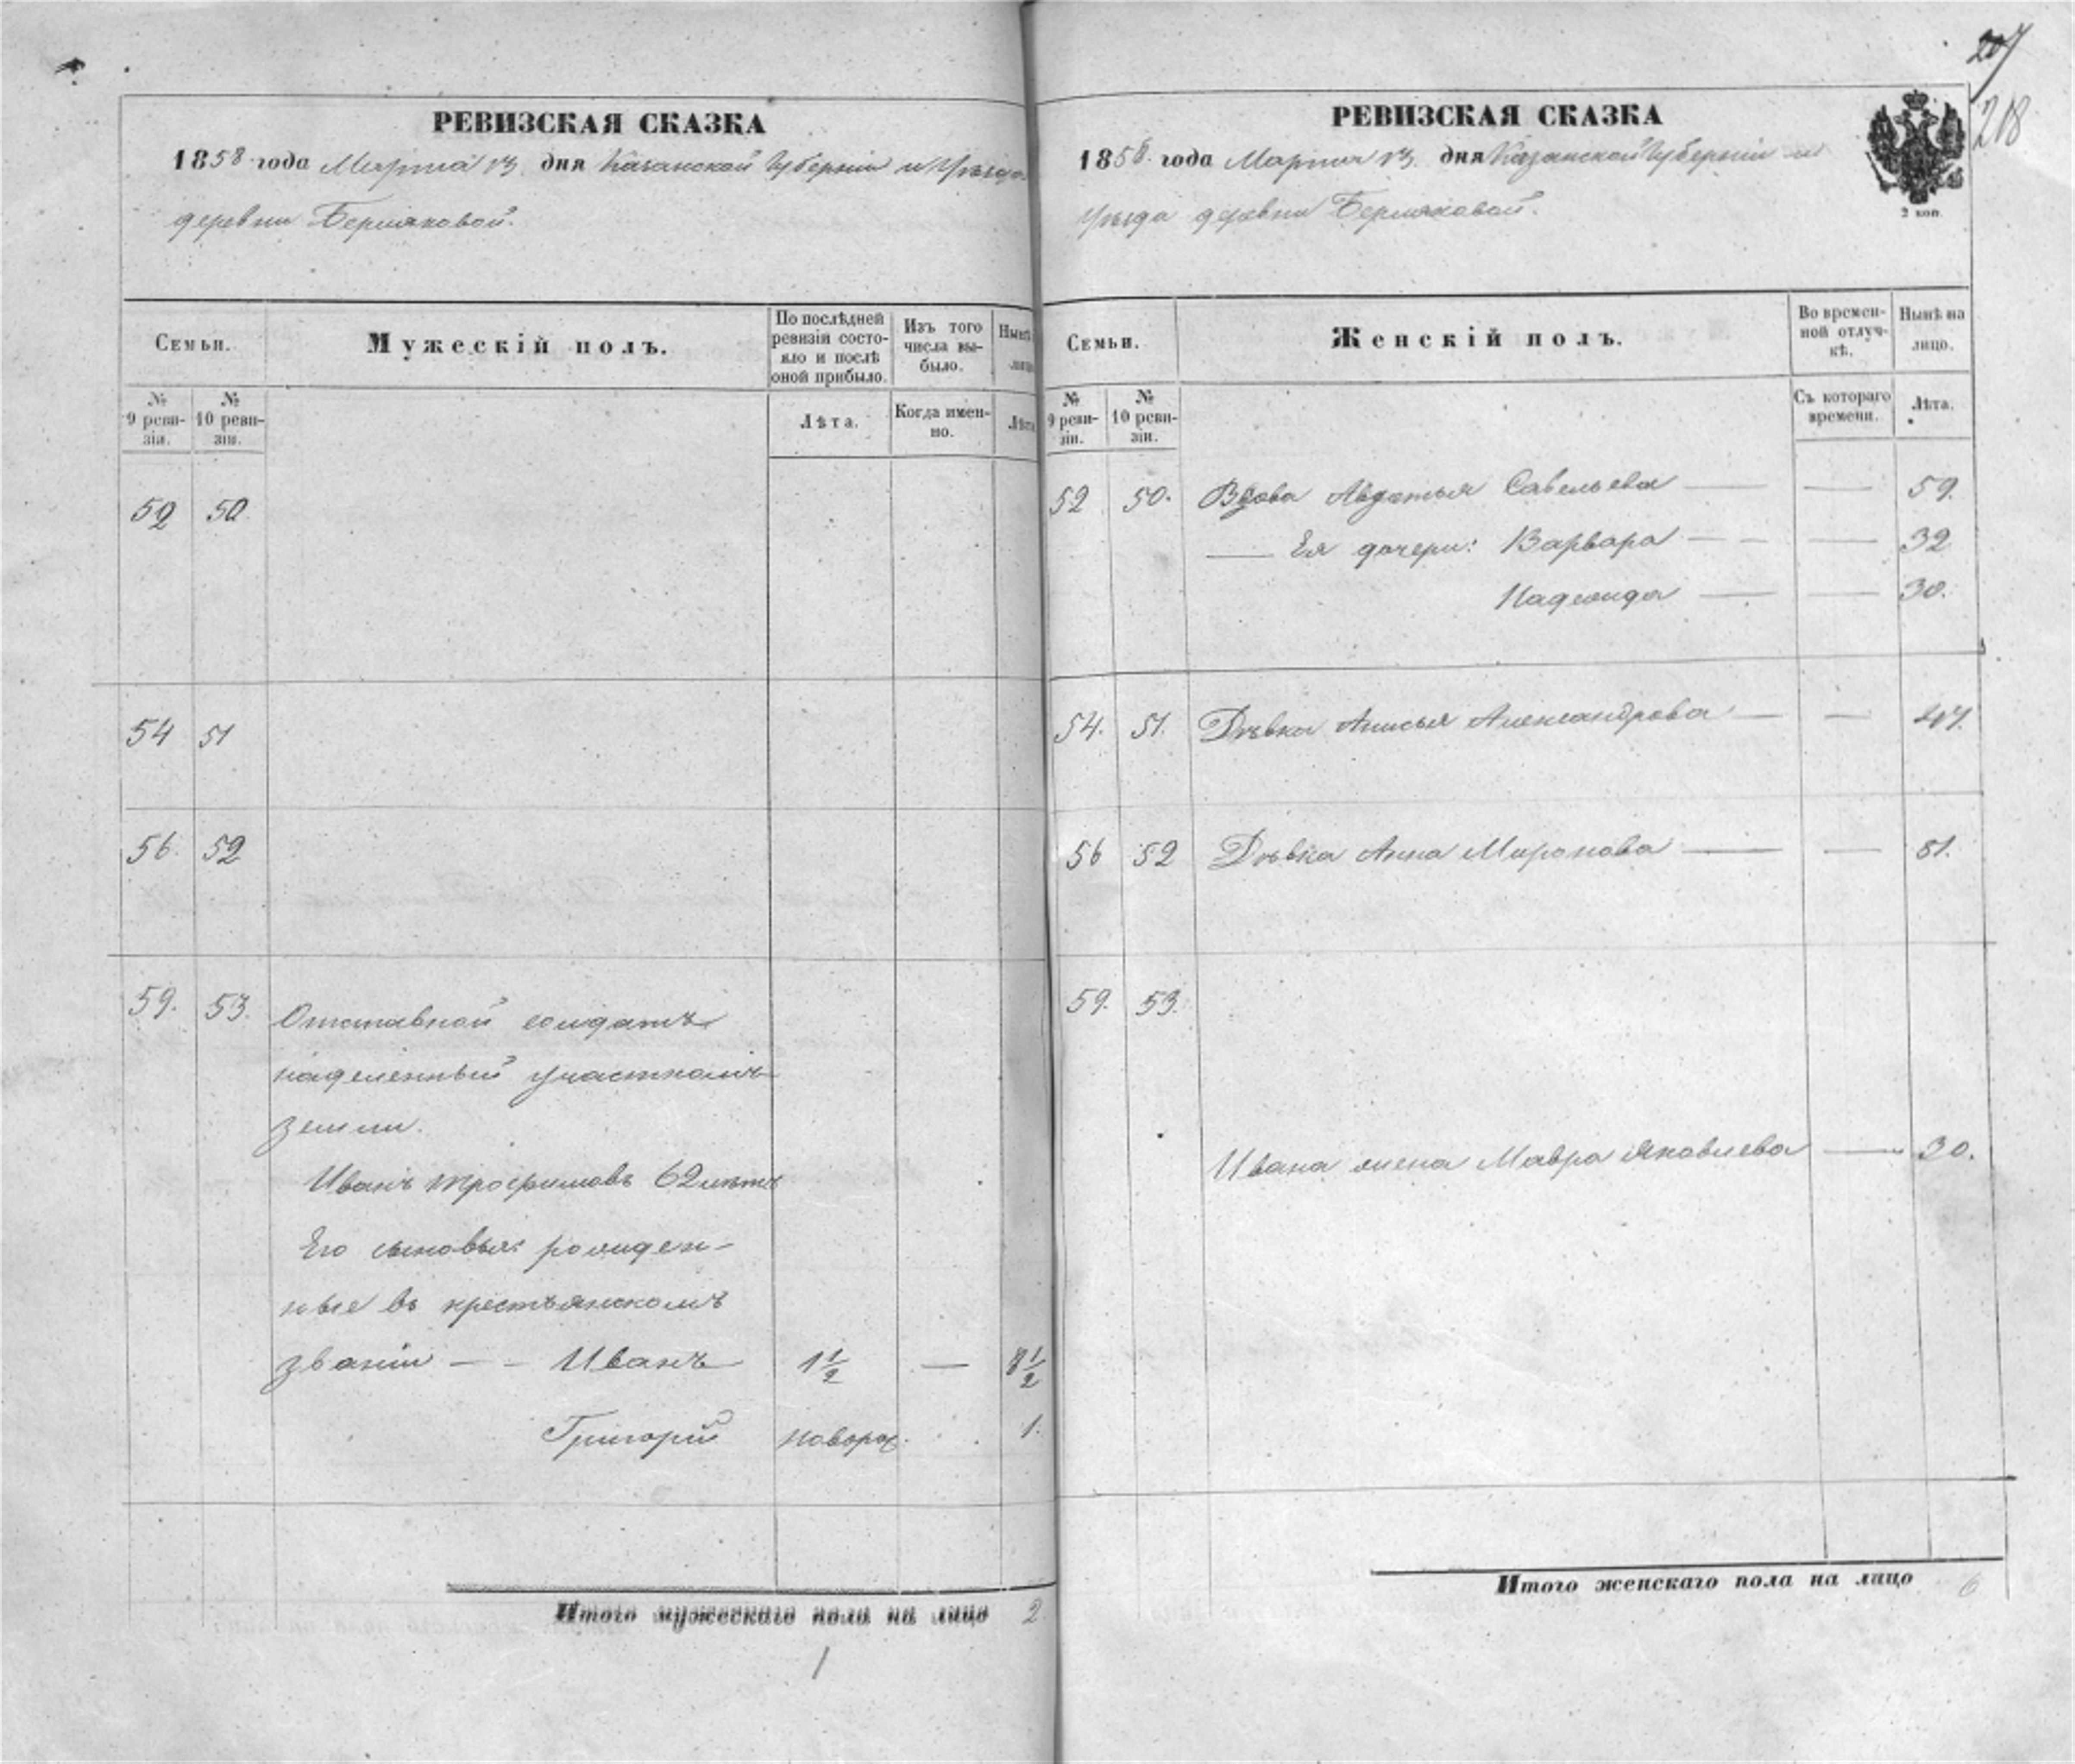 207
218
РЕВИЗСКАЯ СКАЗКА
1858 года Марта 13 дня Казанской Губерніи и Уѣзда
деревни Бермяковой.
Семьи.
Мужескій полъ.
По послѣдней ревизіи состояло и послѣ оной прибыло.
Изъ того числа выбыло.
Нынѣ
№ 9 ревизіи.
№ 10 ревизіи.
Лѣта.
Когда именно.
Лѣта
52 50
54 51
56. 52
59. 53.
Отставной солдатъ
наделенный участкомъ
земли.
Иванъ Трофимовъ 62 лѣтъ
Его сыновья: рожден-
ные въ крестьянскомъ
званіи — - Иванъ 1 1/2 — 8 1/2
Григорій новорож. 1.
Итого мужескаго пола на лицо 2
1
РЕВИЗСКАЯ СКАЗКА
1858 года Марта 13 дня Казанской Губерніи и
Уѣзда деревни Бермяковой.
2 коп.
Семьи.
Женскій полъ.
Во временной отлучкѣ.
Нынѣ на лицо.
№ 9 ревизіи.
№ 10 ревизіи.
Съ котораго времени.
Лѣта.
52 50. Вдова Авдотья Савельева — — 59.
— Ея дочери: Варвара — - — 32
Надежда — — 30.
54. 51. Дѣвка Анисья Александрова — —
56 52 Дѣвка Анна Миронова — — 51.
59. 53.
Ивана жена Мавра Яковлева — 30.
Итого женскаго пола на лицо 6